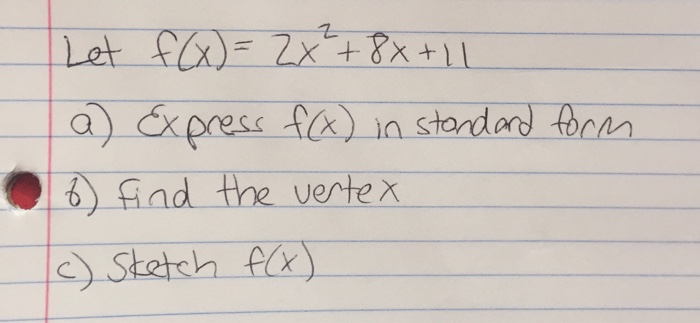 Let f(x) = 2x² + 8x + 11
a) Express f(x) in standard form
b) find the vertex
c) Sketch f(x)